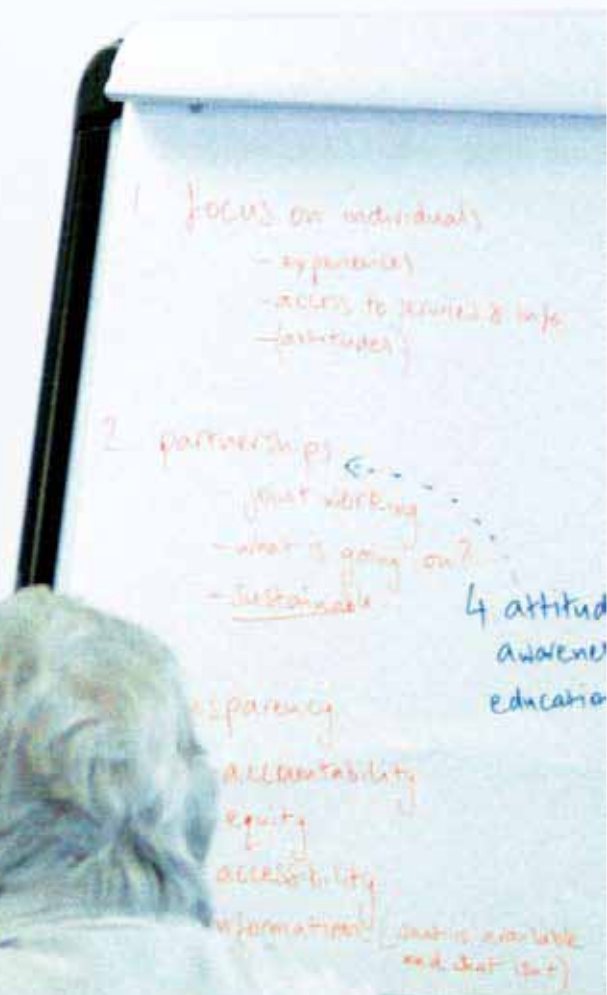 1 focus on individuals
- experiences
- access to services & info
- (attitudes)
2 partnerships
joint working
- what is going on?
- sustainable
4 attitud
awarenes
education
sparency
accountability
equity
accessibility
nformation (what is available
and what isn't)